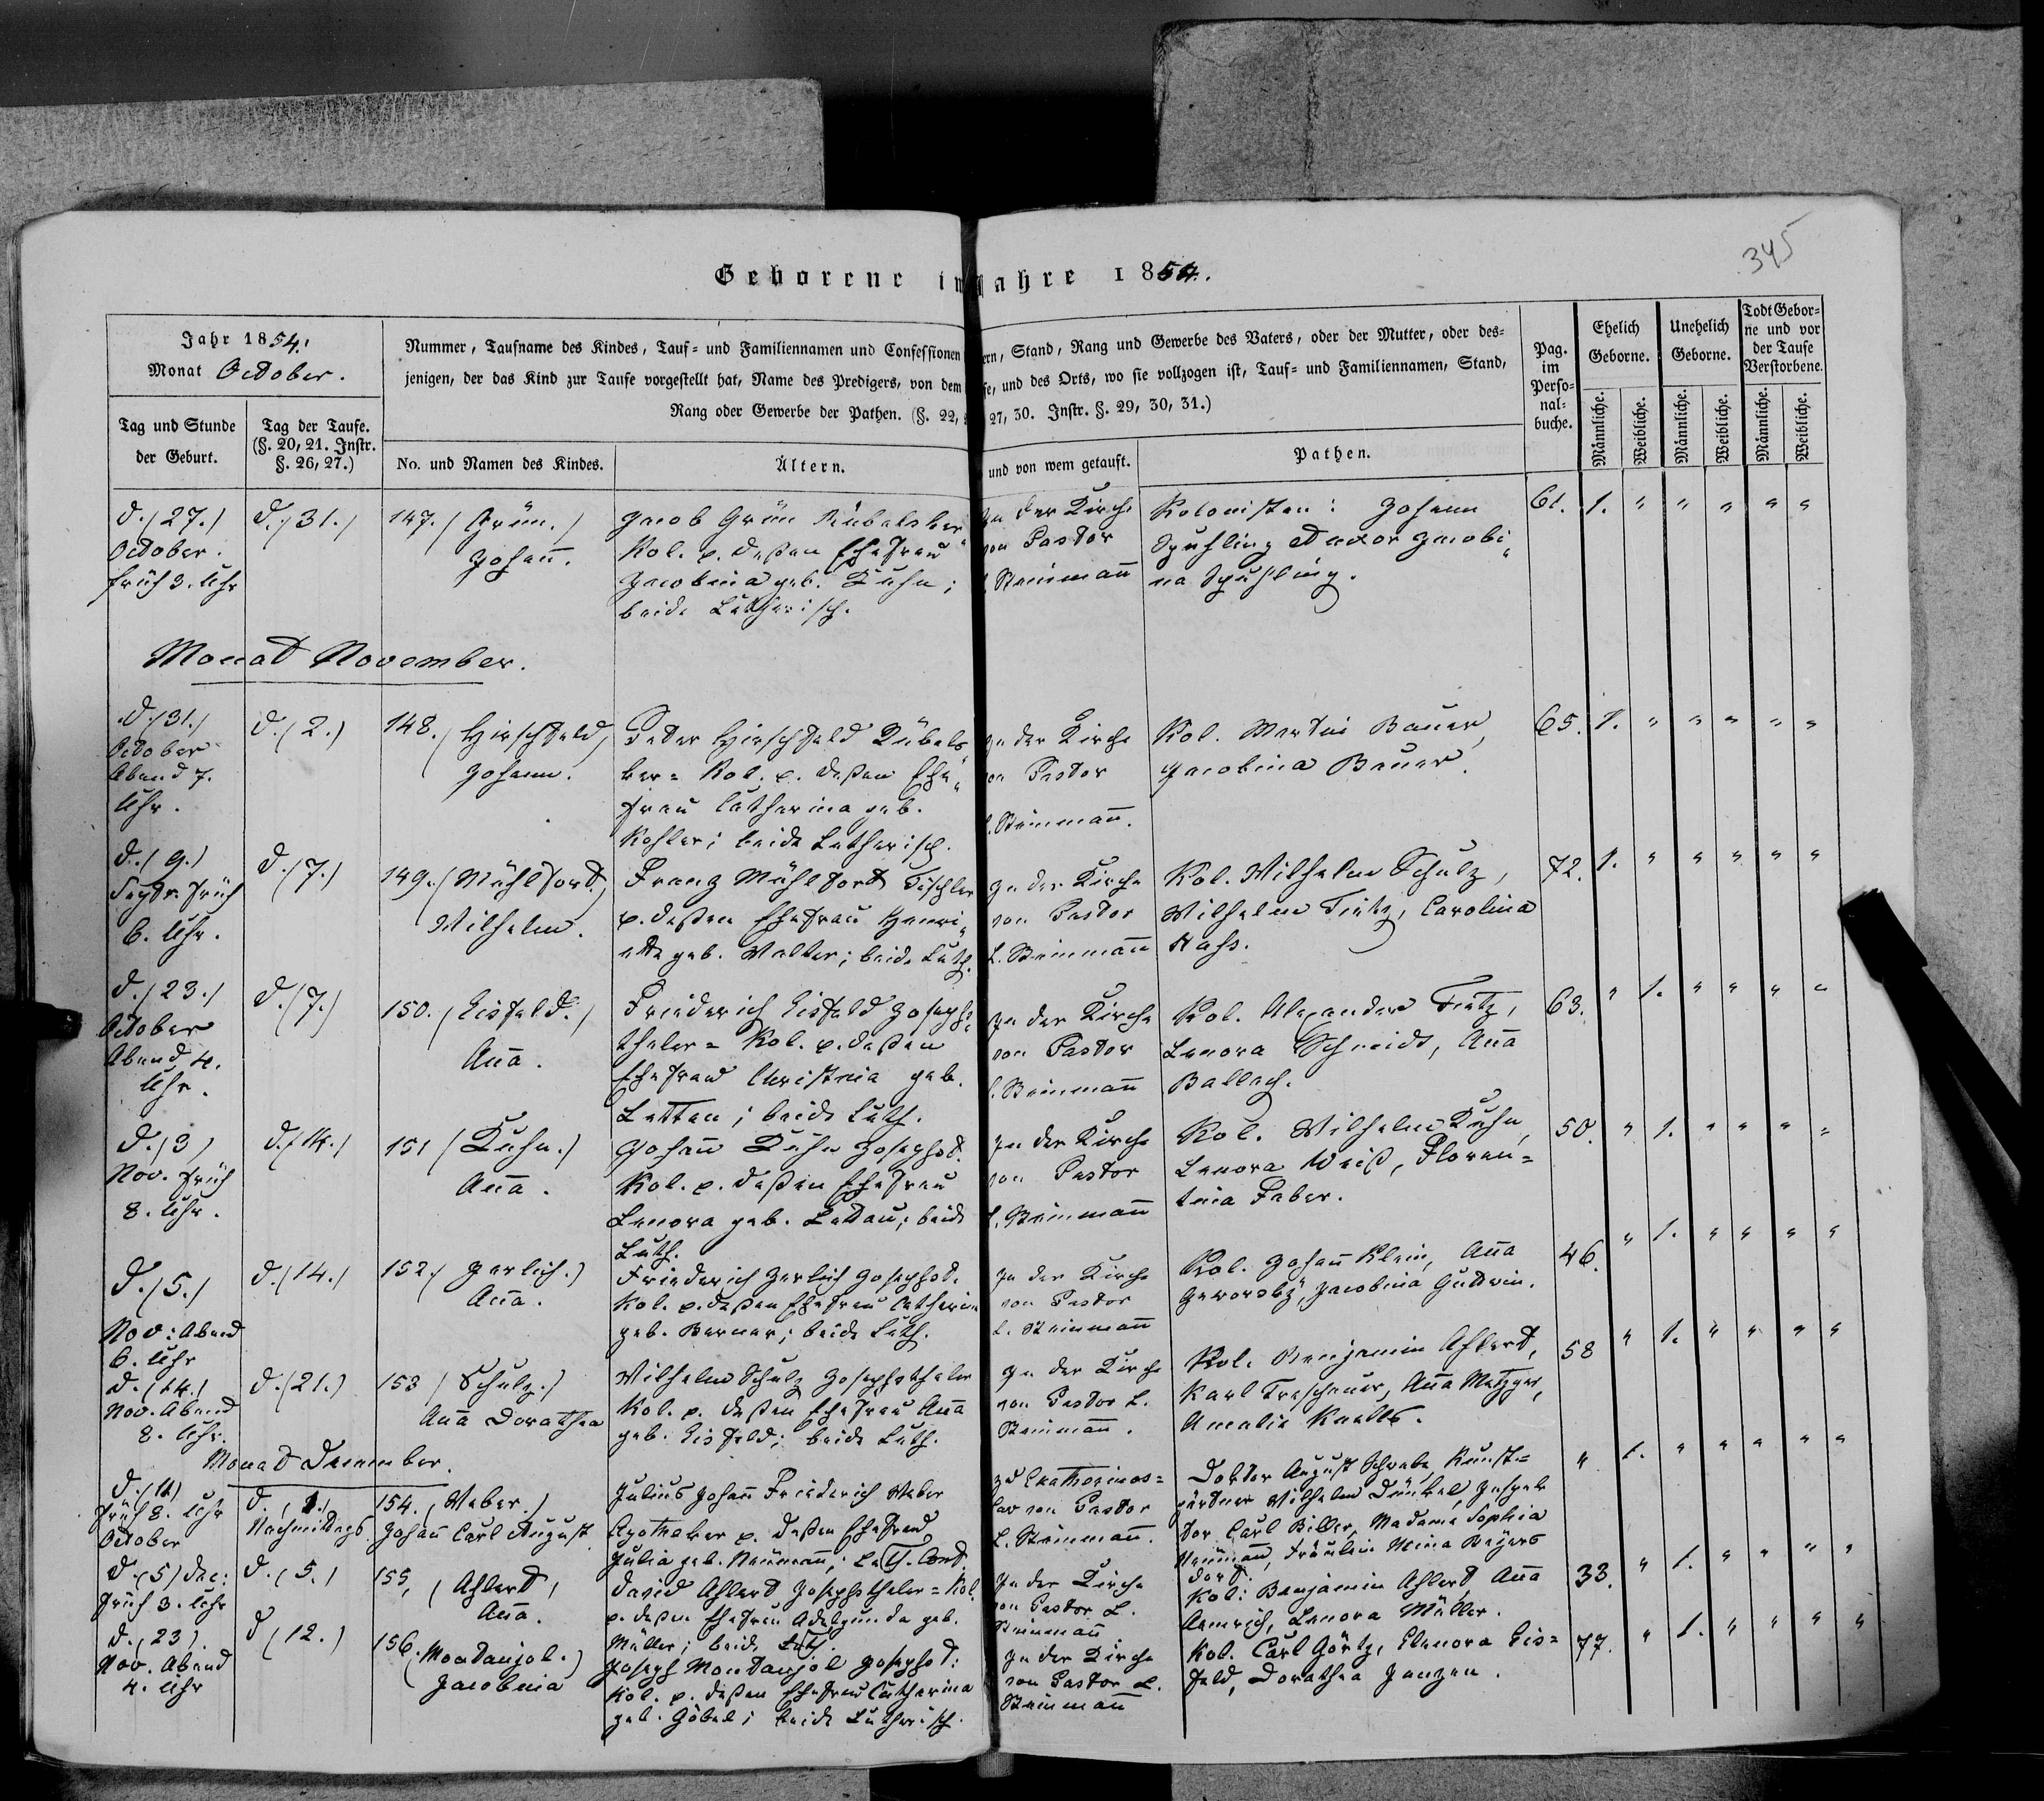 345
Geborene im Jahre 1854.
Jahr 1854.
Monat October.
Nummer, Taufname des Kindes, Tauf- und Familiennamen und Confessionen
ern, Stand, Rang und Gewerbe des Vaters, oder der Mutter, oder des-
jenigen, der das Kind zur Taufe vorgestellt hat, Name des Predigers, von dem
fe, und des Orts, wo sie vollzogen ist, Tauf- und Familiennamen, Stand,
Rang oder Gewerbe der Pathen. (§. 22,
27, 30. Instr. §. 29, 30, 31.)
Tag und Stunde
der Geburt.
Tag der Taufe.
(§. 20, 21. Instr.
§. 26, 27.)
No. und Namen des Kindes.
Ältern.
und von wem getauft.
Pathen.
Pag.
im
Perso-
nal-
buche.
Ehelich
Geborne.
Unehelich
Geborne.
Todt Gebor-
ne und vor
der Taufe
Verstorbene.
Männliche.
Weibliche.
Männliche.
Weibliche.
Männliche.
Weibliche.
d. (27.)
October.
früh 3. Uhr
d. (31.)
147. (Grün.)
Johañ.
Jacob Grün Rübelsber„
Kol. u. deßen Ehefrau
Jacobina geb. Kuhn;
beide Lutherisch.
In der Kirche
von Pastor
L. Steinmañ
Kolonisten: Johann
Spuhling Jacobi„
na Spuhling.
61. 1. „ „ „ „ „
Monat November.
d. (31.)
October
Abend 7.
Uhr.
d. (2.)
148. (Hirschfeld)
Johann.
Peter Hirschfeld Rübels
ber- Kol. u. deßen Ehe„
frau Catharina geb.
Kohler; beide Lutherisch.
In der Kirche
von Pastor
L. Steinmañ.
Kol. Martin Bauer,
Jacobina Bauer.
65. 1. „ „ „ „ „
d. (9.)
Septr. früh
6. Uhr.
d. (7.)
149. (Mühlfort.)
Wilhelm.
Franz Mühlfort Tischler
u. deßen Ehefrau Henri„
ette geb. Walter; beide Luth.
In der Kirche
von Pastor
L. Steinmañ
Kol. Wilhelm Schulz,
Wilhelm Tietz, Carolina
Hass.
72. 1. „ „ „ „ „
d. (23.)
October
Abend 4.
Uhr.
d. (7.)
150. (Eisfeld.)
Aña.
Friederich Eisfeld Josephs„
thaler- Kol. u. deßen
Ehefrau Christina geb.
Letten; beide Luth.
In der Kirche
von Pastor
L. Steinmañ
Kol. Alexander Tietz,
Lenora Schmidt, Aña
Ballach.
63. „ 1. „ „ „ „
d. (3)
Nov. früh
8. Uhr.
d. (14.)
151 (Kuhn.)
Aña.
Johañ Kuhn Josephst.
Kol. u. deßen Ehefrau
Lenora geb. Letkau; beide
Luth.
In der Kirche
von Pastor
L. Steinmañ
Kol. Wilhelm Kuhn,
Lenora Weiß, Floren-
tina Faber.
50. „ 1. „ „ „ „
d. (5.)
Nov: Abend
6. Uhr
d. (14.)
152. (Gerlich.)
Aña.
Friederich Gerlich Josephst.
Kol. u. deßen Ehefrau Catharina
geb. Berner; beide Luth.
In der Kirche
von Pastor
L. Steinmañ
Kol. Johañ Klein, Aña
Jacobina Gutwin.
46. „ 1. „ „ „ „
d. (14.)
Nov. Abend
8. Uhr.
d. (21.)
153 (Schulz.)
Aña Dorathea
Wilhelm Schulz Josephsthaler
Kol. u. deßen Ehefrau Aña
geb. Eisfeld; beide Luth.
In der Kirche
von Pastor L.
Steinmañ.
Kol. Benjamin Ahlert,
Karl Treschauer, Aña Metzger,
Amalie Knells.
58 „ 1. „ „ „ „
Monat December.
d. (11)
früh 8. Uhr
October
d. (1.)
Nachmittags
154. (Weber.)
Johañ Carl August
Julius Johañ Friederich Weber
Apotheker u. deßen Ehefrau
Julia geb. Neumañ; Luth. Conf.
Zu Ekatherinos-
law von Pastor
L. Steinmañ.
Doktor August Schwebe Kunst-
gärtner Wilhelm Dünkel, Inspek
tor Carl Biller, Madame Sophia
Neumañ, Fräulein Mina Beyers
dorf.
„ 1. „ „ „ „ „
d. (5) Dec:
früh 3. Uhr
d. (5.)
155. (Ahlert)
Aña.
David Ahlert Josephsthaler- Kol.
u. deßen Ehefrau Adelgunda geb.
Müller; beide Luth.
In der Kirche
von Pastor L.
Steinmañ
Kol. Benjamin Ahlert, Aña
Aemrich, Lenora Müller.
33. „ 1. „ „ „ „
d. (23).
Nov. Abend
4. Uhr
d (12.)
156. (Montanjol.)
Jacobina
Joseph Montanjol Josephst:
Kol. u. deßen Ehefrau Catharina
geb. Göbel; beide Lutherisch.
In der Kirche
von Pastor L.
Steinmañ
Kol. Carl Görtz, Elenora Eis-
feld, Dorathea Janzen.
77. „ 1. „ „ „ „